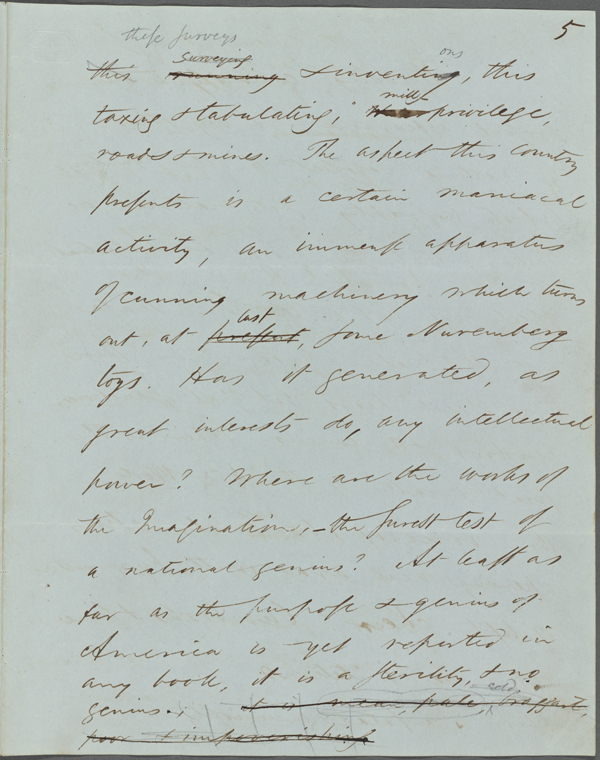 5
these surveys
surveying ons
this running & inventing, this
mills
taxing & tabulating, privilege,
roads & mines. The aspect this country
presents is a certain maniacal
activity, an immense apparatus
of cunning machinery which turns
last
out, at present, some Nuremberg
toys. Has it generated, as
great interests do, any intellectual
power? Where are the works of
the Imagination, – the surest test of
a national genius? At least as
far as the purpose & genius of
America is yet reported in
any book, it is a sterility, & no
cold,
genius. it is mean, pale, braggart,
poor & impoverishing